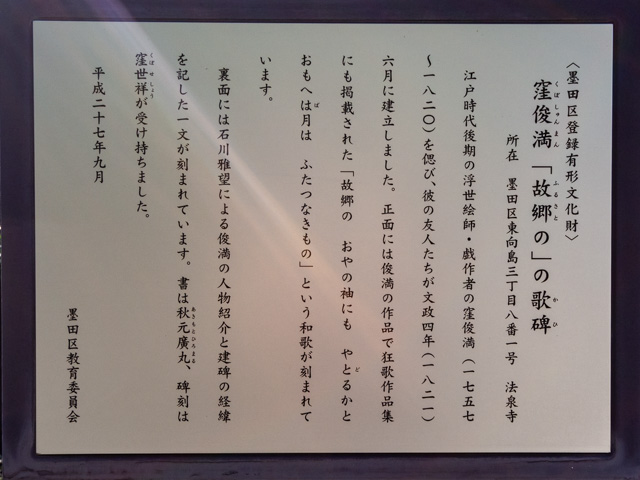 〈墨田区登録有形文化財〉
窪俊満「故郷の」の歌碑
くぼしゅんまん ふるさと かひ
所在 墨田区東向島三丁目八番一号 法泉寺
江戸時代後期の浮世絵師・戯作者の窪俊満(一七五七
~一八二〇)を偲び、彼の友人たちが文政四年(一八二一)
六月に建立しました。正面には俊満の作品で狂歌作品集
にも掲載された「故郷の おやの袖にも やとるかと
ど
おもへは月は ふたつなきもの」という和歌が刻まれて
ば
います。
裏面には石川雅望による俊満の人物紹介と建碑の経緯
を記した一文が刻まれています。書は秋元廣丸、碑刻は
あきもとひろまる
窪世祥が受け持ちました。
くぼせしょう
平成二十七年九月
墨田区教育委員会